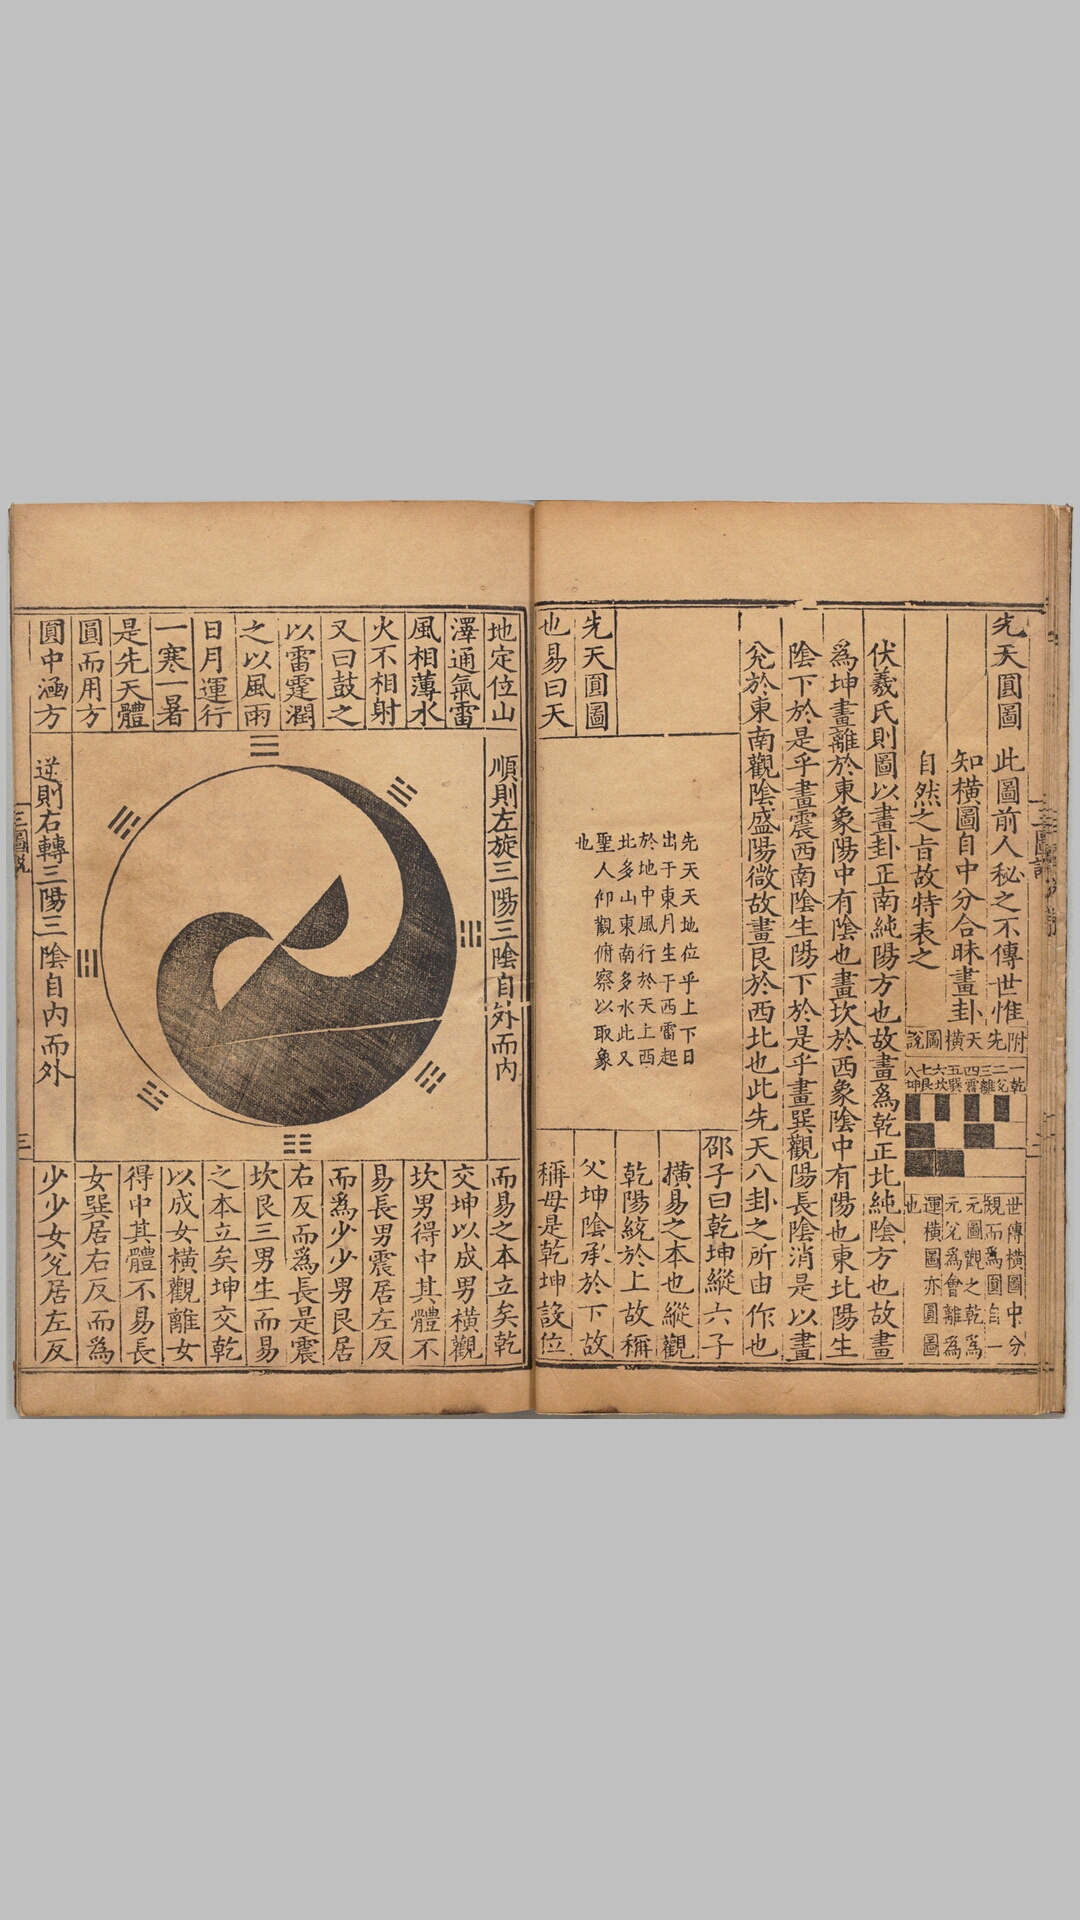 先天圓圖
此圖前人秘之不傳世惟
知橫圖自中分合昧畫卦
自然之旨故特表之
附先天橫圖說
一乾
二兌
三離
四震
五巽
六坎
七艮
八坤
世傳橫圖中分
規而爲圓自一
元圖觀之乾爲
元兌爲會離爲
運橫圖亦圓圖
也
伏羲氏則圖以畫卦正南純陽方也故畫爲乾正北純陰方也故畫
爲坤畫離於東象陽中有陰也畫坎於西象陰中有陽也東北陽生
陰下於是乎畫震西南陰生陽下於是乎畫巽觀陽長陰消是以畫
兌於東南觀陰盛陽微故畫艮於西北也此先天八卦之所由作也
先天圓圖
也易曰天
先天天地位乎上下日
出于東月生于西雷起
於地中風行於天上西
北多山東南多水此又
聖人仰觀俯察以取象
也
邵子曰乾坤縱六子
橫易之本也縱觀
乾陽統於上故稱
父坤陰承於下故
稱母是乾坤設位
地定位山
澤通氣雷
風相薄水
火不相射
又曰鼓之
以雷霆潤
之以風雨
日月運行
一寒一暑
是先天體
圓而用方
圓中涵方
順則左旋三陽三陰自外而內
逆則右轉三陽三陰自內而外
而易之本立矣乾
交坤以成男橫觀
坎男得中其體不
易長男震居左反
而爲少少男艮居
右反而爲長是震
坎艮三男生而易
之本立矣坤交乾
以成女橫觀離女
得中其體不易長
女巽居右反而爲
少少女兌居左反
三圖說
三